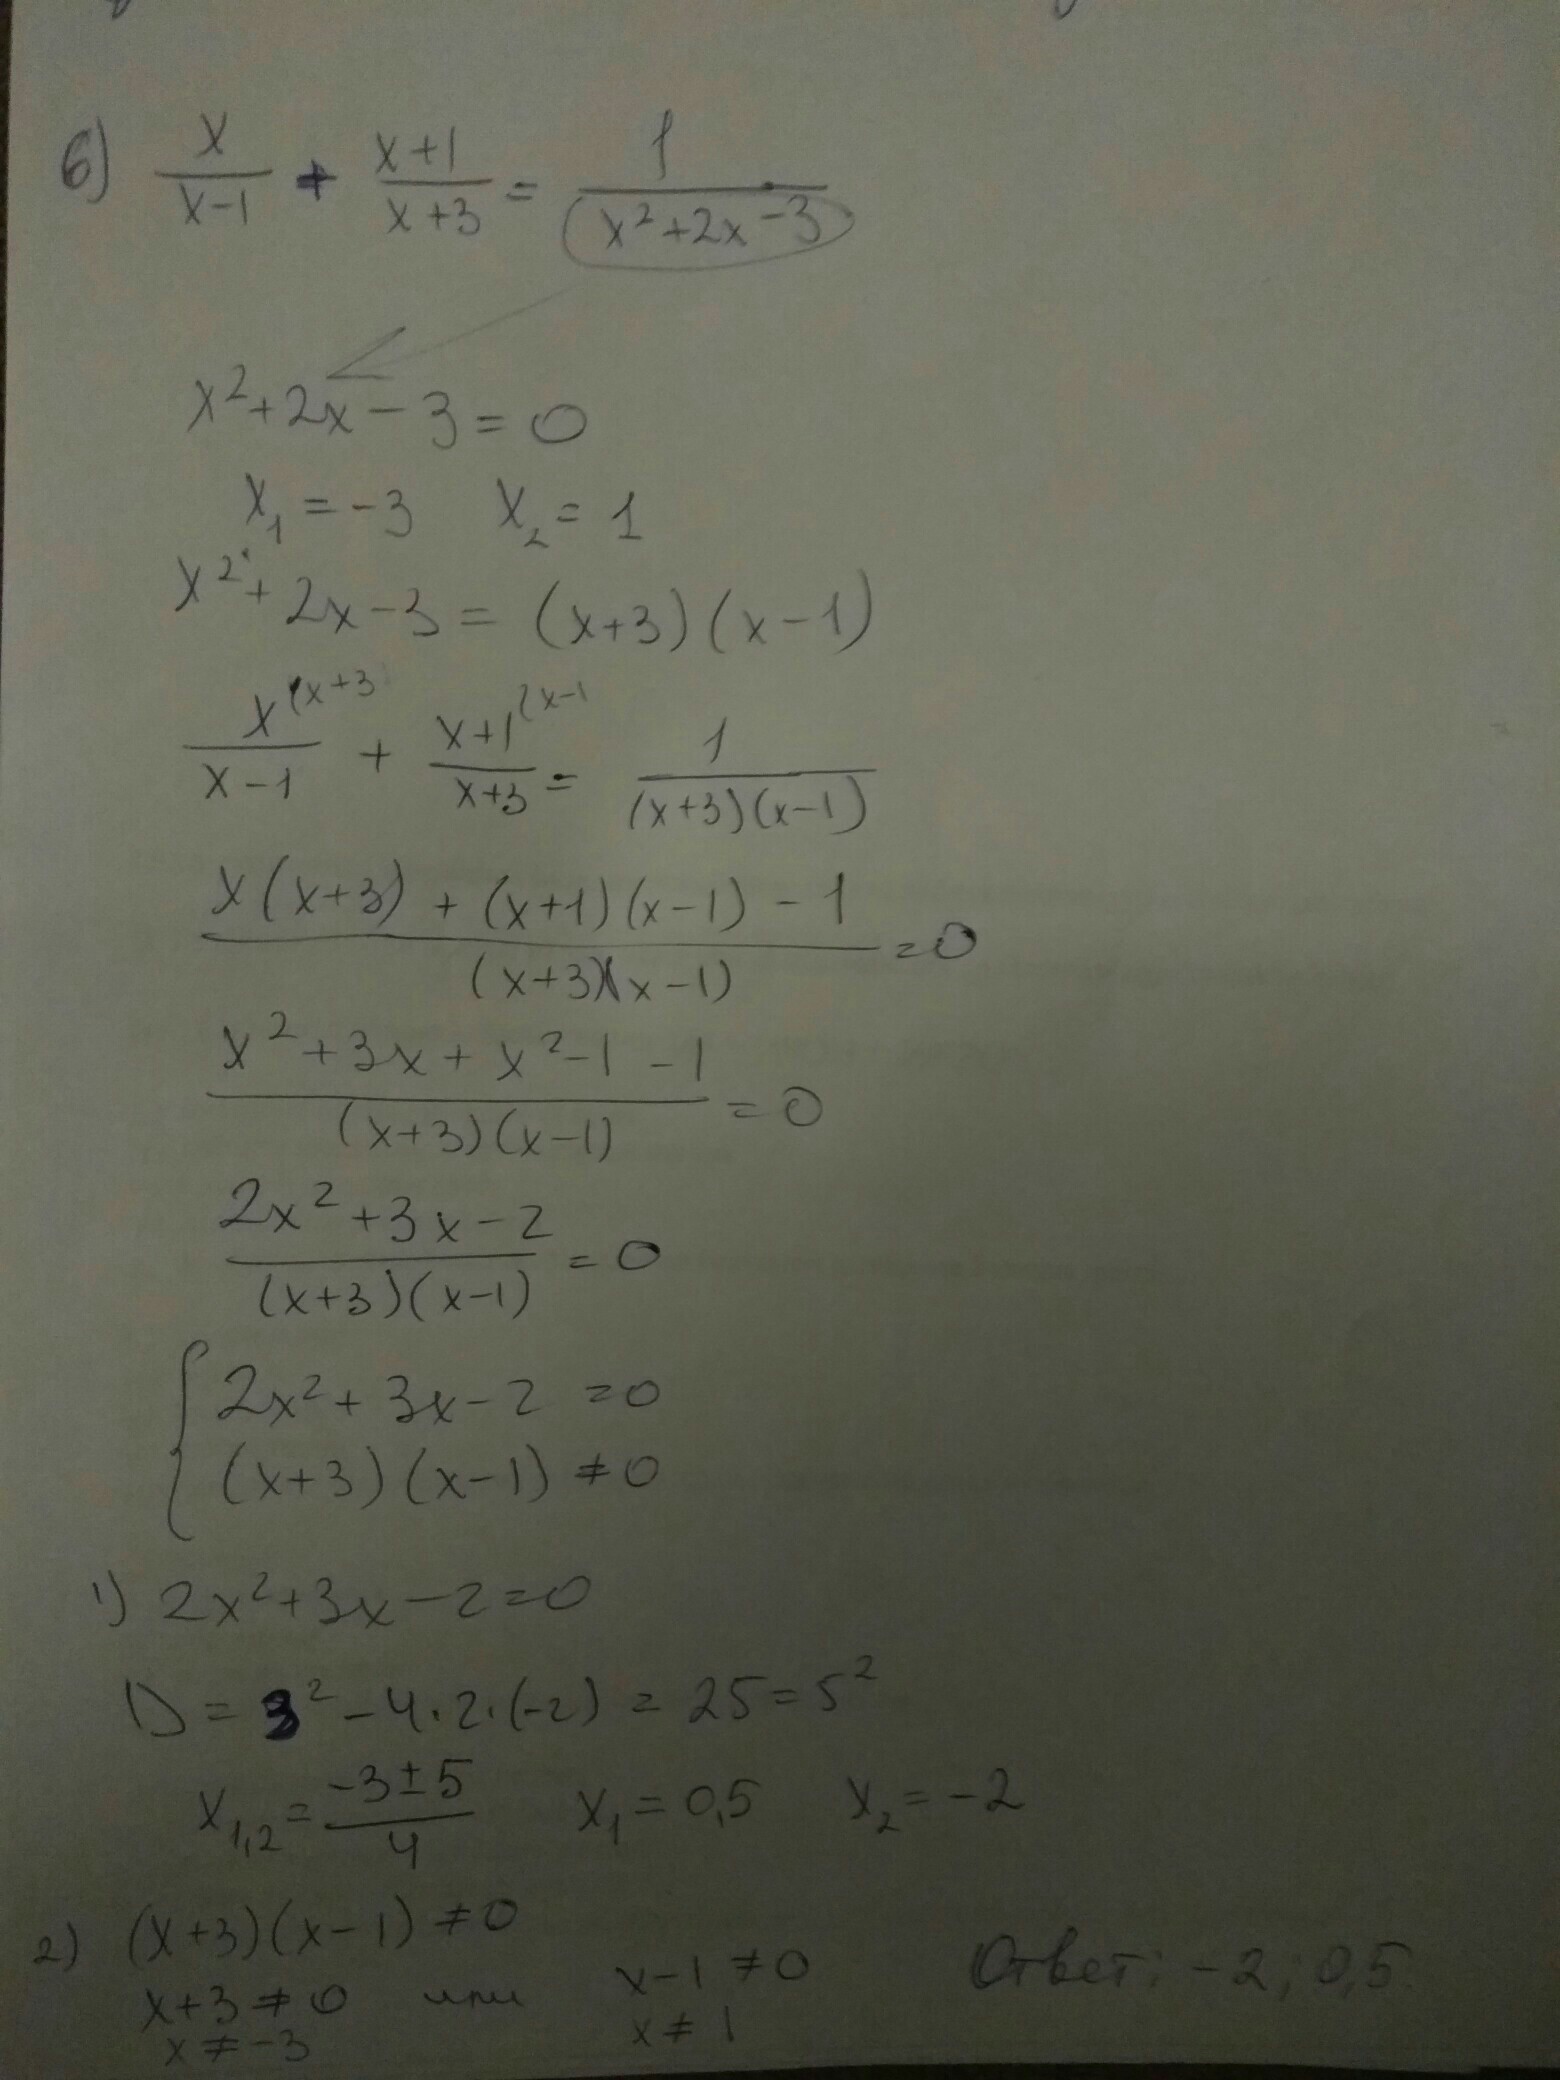 б) x/(x-1) + (x+1)/(x+3) = 1/(x²+2x-3)
x²+2x-3=0
x₁=-3 x₂=1
x²+2x-3=(x+3)(x-1)
x^(x+3/(x-1) + x+1^(x-1/(x+3) = 1/((x+3)(x-1))
(x(x+3)+(x+1)(x-1)-1)/((x+3)(x-1))=0
(x²+3x+x²-1-1)/((x+3)(x-1))=0
(2x²+3x-2)/((x+3)(x-1))=0
{ 2x²+3x-2=0
(x+3)(x-1)≠0
1) 2x²+3x-2=0
D=3²-4·2·(-2)=25=5²
x₁,₂=(-3±5)/4 x₁=0,5 x₂=-2
2) (x+3)(x-1)≠0
x+3≠0 или x-1≠0
x≠-3 x≠1
Ответ: -2; 0,5.